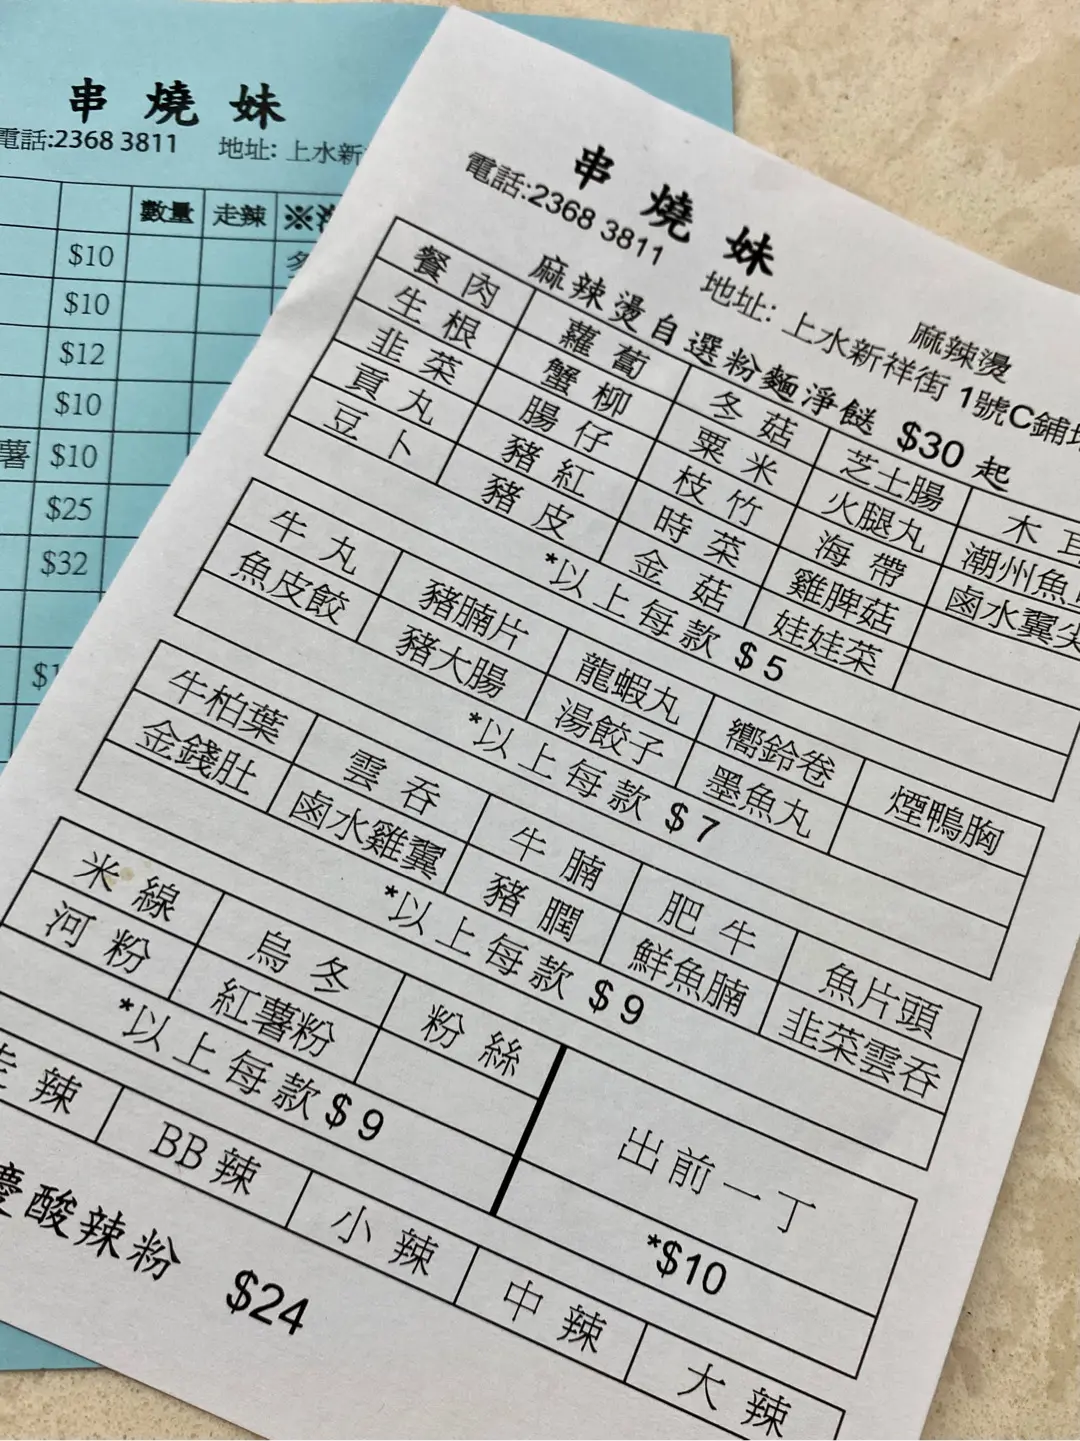 串燒妹
電話:2368 3811 地址: 上水新
數量 走辣
$10
$10
$12
$10
薯 $10
$25
$32
串燒妹
麻辣燙
電話:2368 3811 地址: 上水新祥街 1號C鋪
麻辣燙自選粉麵淨餸 $30 起
餐肉 蘿蔔 冬菇 芝士腸 木
生根 蟹柳 粟米 火腿丸 潮州魚
韭菜 腸仔 枝竹 海帶 鹵水翼尖
貢丸 豬紅 時菜 雞脾菇
豆卜 豬皮 金菇 娃娃菜
*以上每款 $5
牛丸 豬腩片 龍蝦丸 嚮鈴卷 煙鴨胸
魚皮餃 豬大腸 湯餃子 墨魚丸
*以上每款 $7
牛柏葉 雲吞 牛腩 肥牛 魚片頭
金錢肚 鹵水雞翼 豬膶 鮮魚腩 韭菜雲吞
*以上每款 $9
米線 烏冬 粉絲 出前一丁
河粉 紅薯粉
*以上每款 $9 *$10
走辣 BB辣 小辣 中辣 大辣
慶酸辣粉 $24